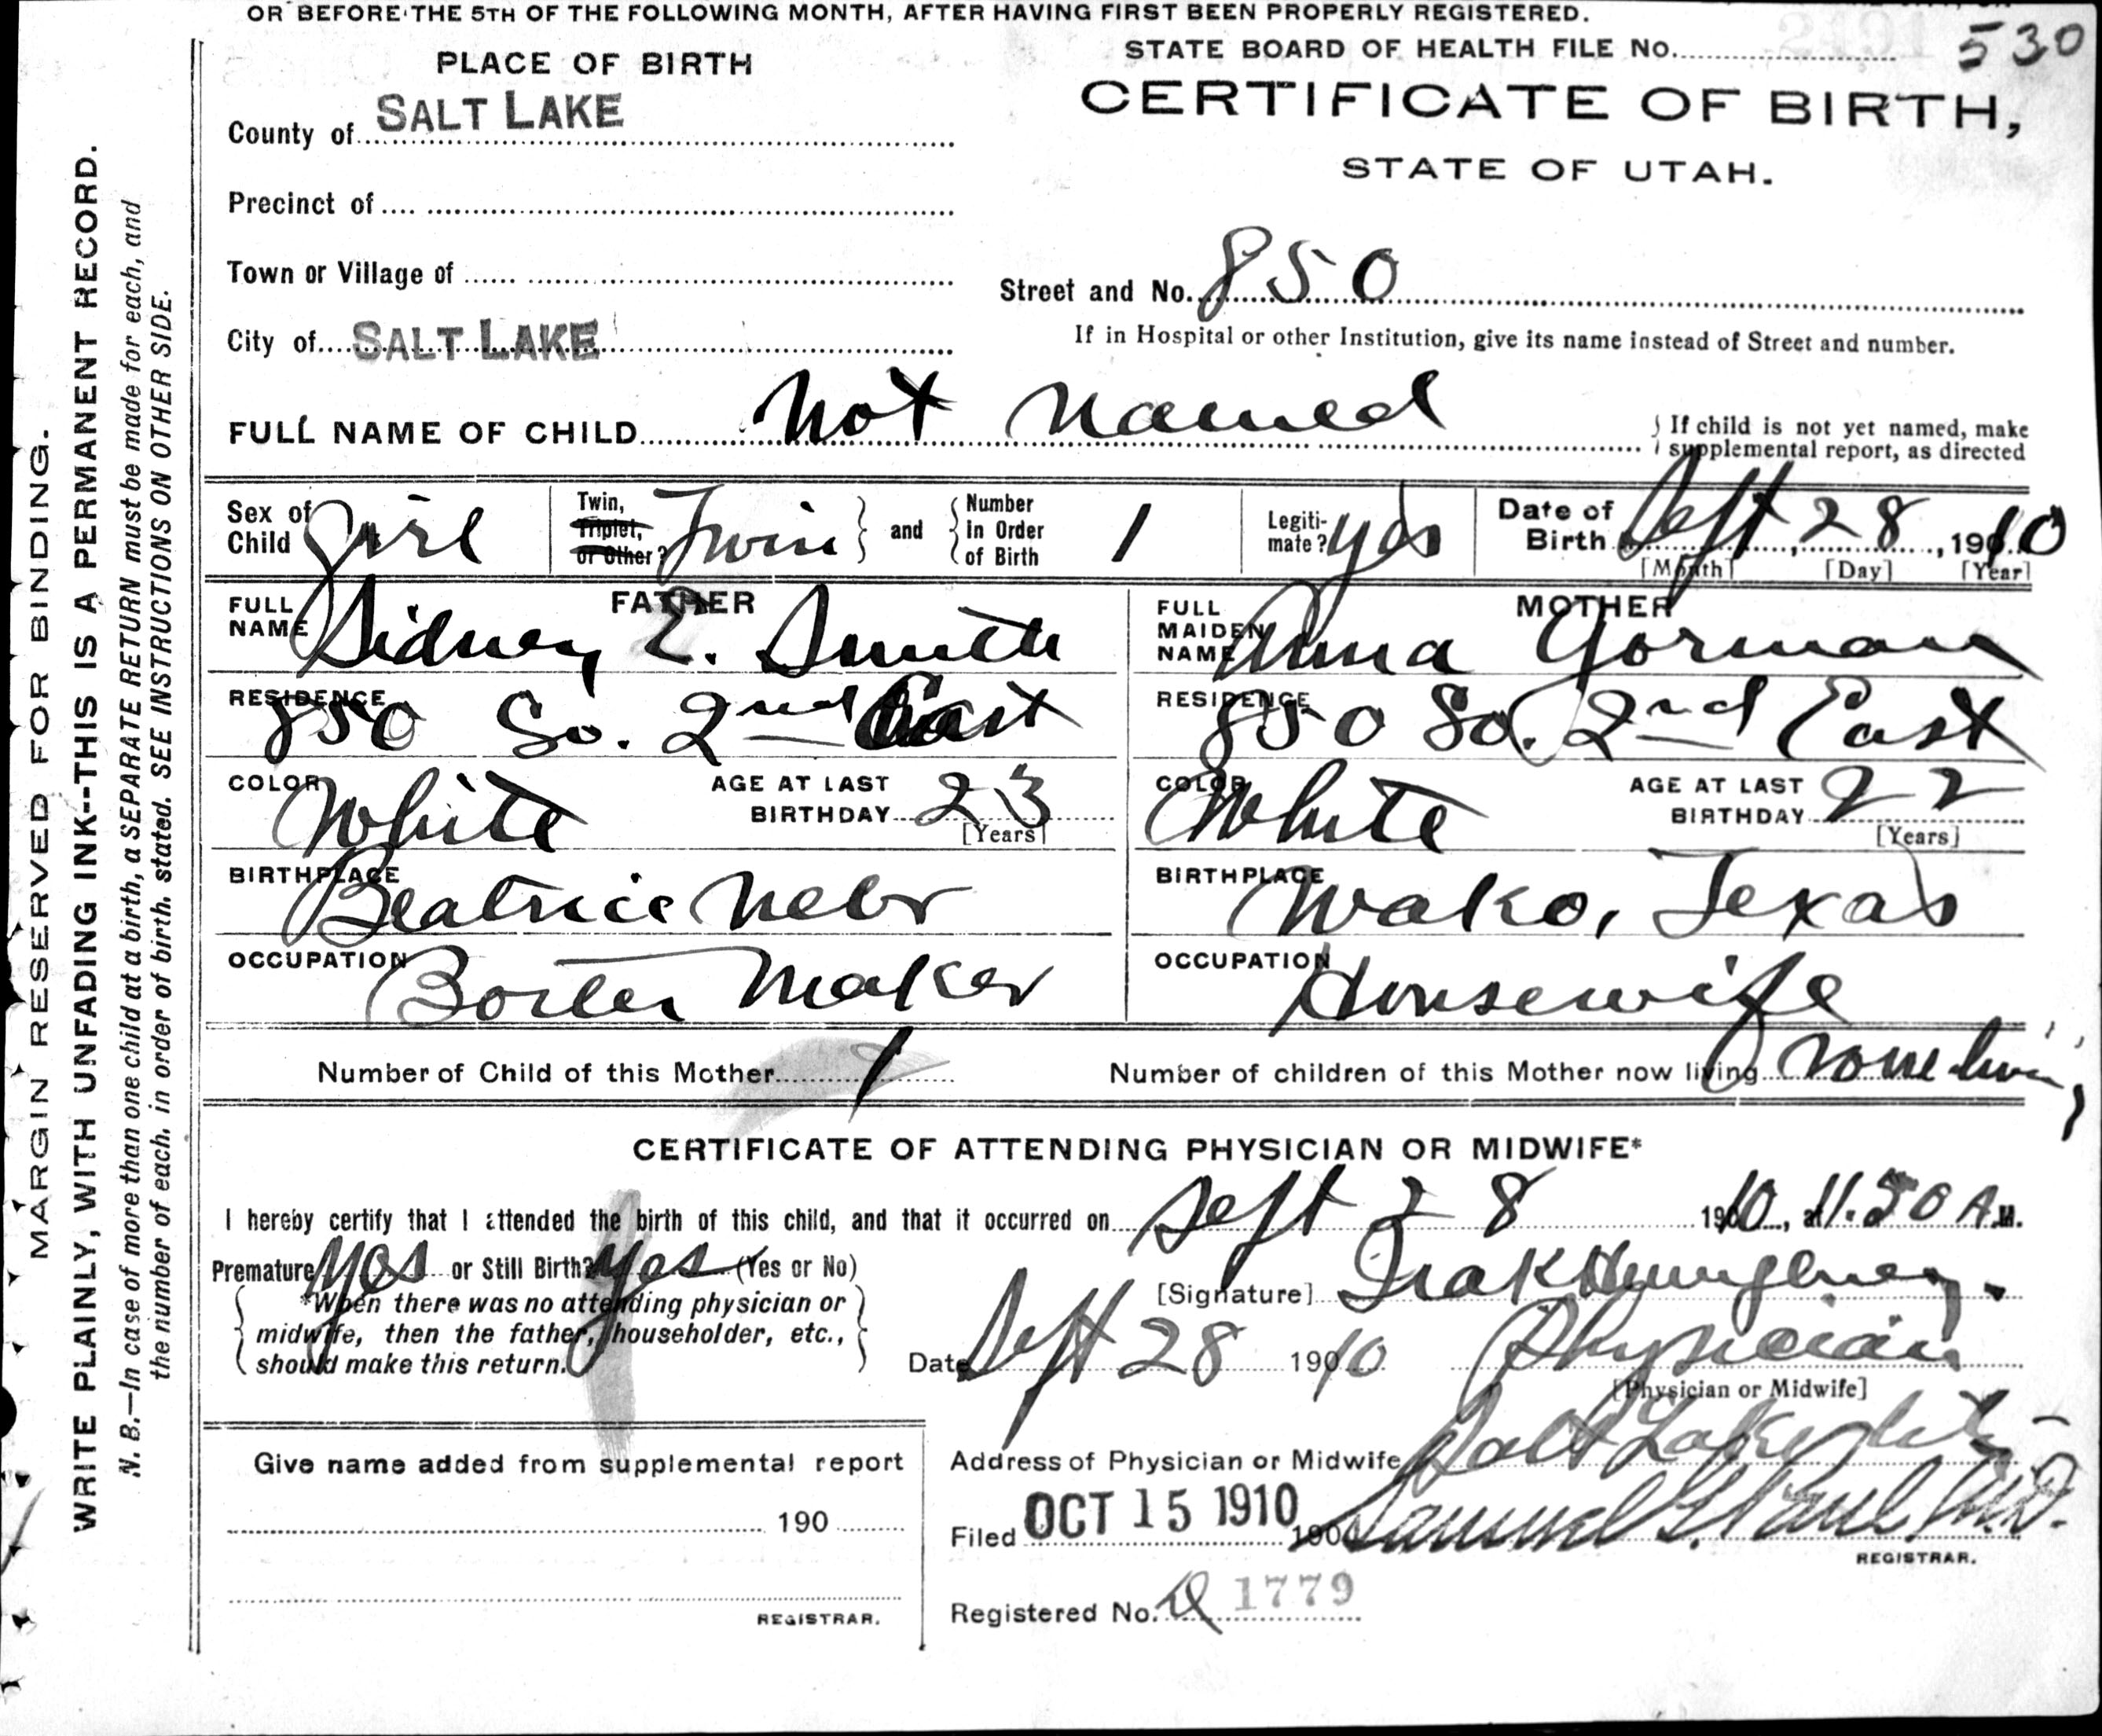 OR BEFORE THE 5TH OF THE FOLLOWING MONTH, AFTER HAVING FIRST BEEN PROPERLY REGISTERED.
STATE BOARD OF HEALTH FILE No. 530
PLACE OF BIRTH
CERTIFICATE OF BIRTH,
STATE OF UTAH.
County of SALT LAKE
Precinct of
Town or Village of
Street and No. 850
If in Hospital or other Institution, give its name instead of Street and number.
City of SALT LAKE
FULL NAME OF CHILD Not Named
If child is not yet named, make
supplemental report, as directed
Sex of Child Girl
Twin, Triplet, or Other? Twin and Number in Order of Birth 1
Legitimate? yes
Date of Birth Sept, 28, 1910
[Month] [Day] [Year]
FATHER
FULL NAME Sidney E. Smith
RESIDENCE 850 So. 2nd East
COLOR White AGE AT LAST BIRTHDAY 23 [Years]
BIRTHPLACE Beatrice Nebr
OCCUPATION Boiler Maker
MOTHER
FULL MAIDEN NAME Anna Gorman
RESIDENCE 850 So. 2nd East
COLOR White AGE AT LAST BIRTHDAY 22 [Years]
BIRTHPLACE Wako, Texas
OCCUPATION Housewife
Number of Child of this Mother 1
Number of children of this Mother now living none living
CERTIFICATE OF ATTENDING PHYSICIAN OR MIDWIFE*
I hereby certify that I attended the birth of this child, and that it occurred on Sept 28 1910, at 11.50 A.M.
Premature yes or Still Birth? yes (Yes or No)
*When there was no attending physician or
midwife, then the father, householder, etc.,
should make this return.
[Signature]
Date Sept 28 1910 Physician
[Physician or Midwife]
Address of Physician or Midwife Salt Lake City
Filed OCT 15 1910 190 Samuel G. Paul, M.D.
REGISTRAR.
Registered No. 1779
Give name added from supplemental report
190
REGISTRAR.
MARGIN RESERVED FOR BINDING.
WRITE PLAINLY, WITH UNFADING INK--THIS IS A PERMANENT RECORD.
N. B.—In case of more than one child at a birth, a SEPARATE RETURN must be made for each, and
the number of each, in order of birth, stated. SEE INSTRUCTIONS ON OTHER SIDE.